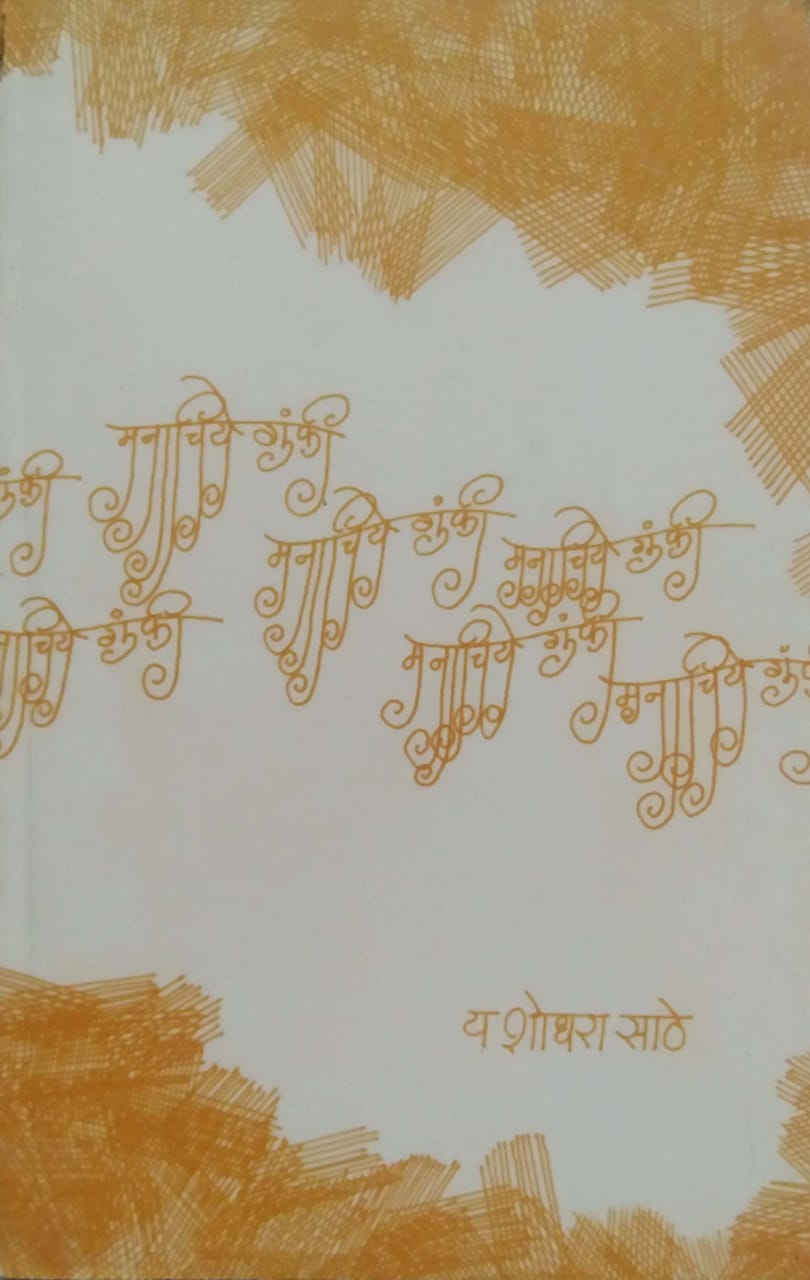 मनाचिये गुंफी
गुंफी
मनाचिये गुंफी
मनाचिये गुंफी
मनाचिये गुंफी
मनाचिये गुंफी
मनाचिये गुंफी
यशोधरा साठे